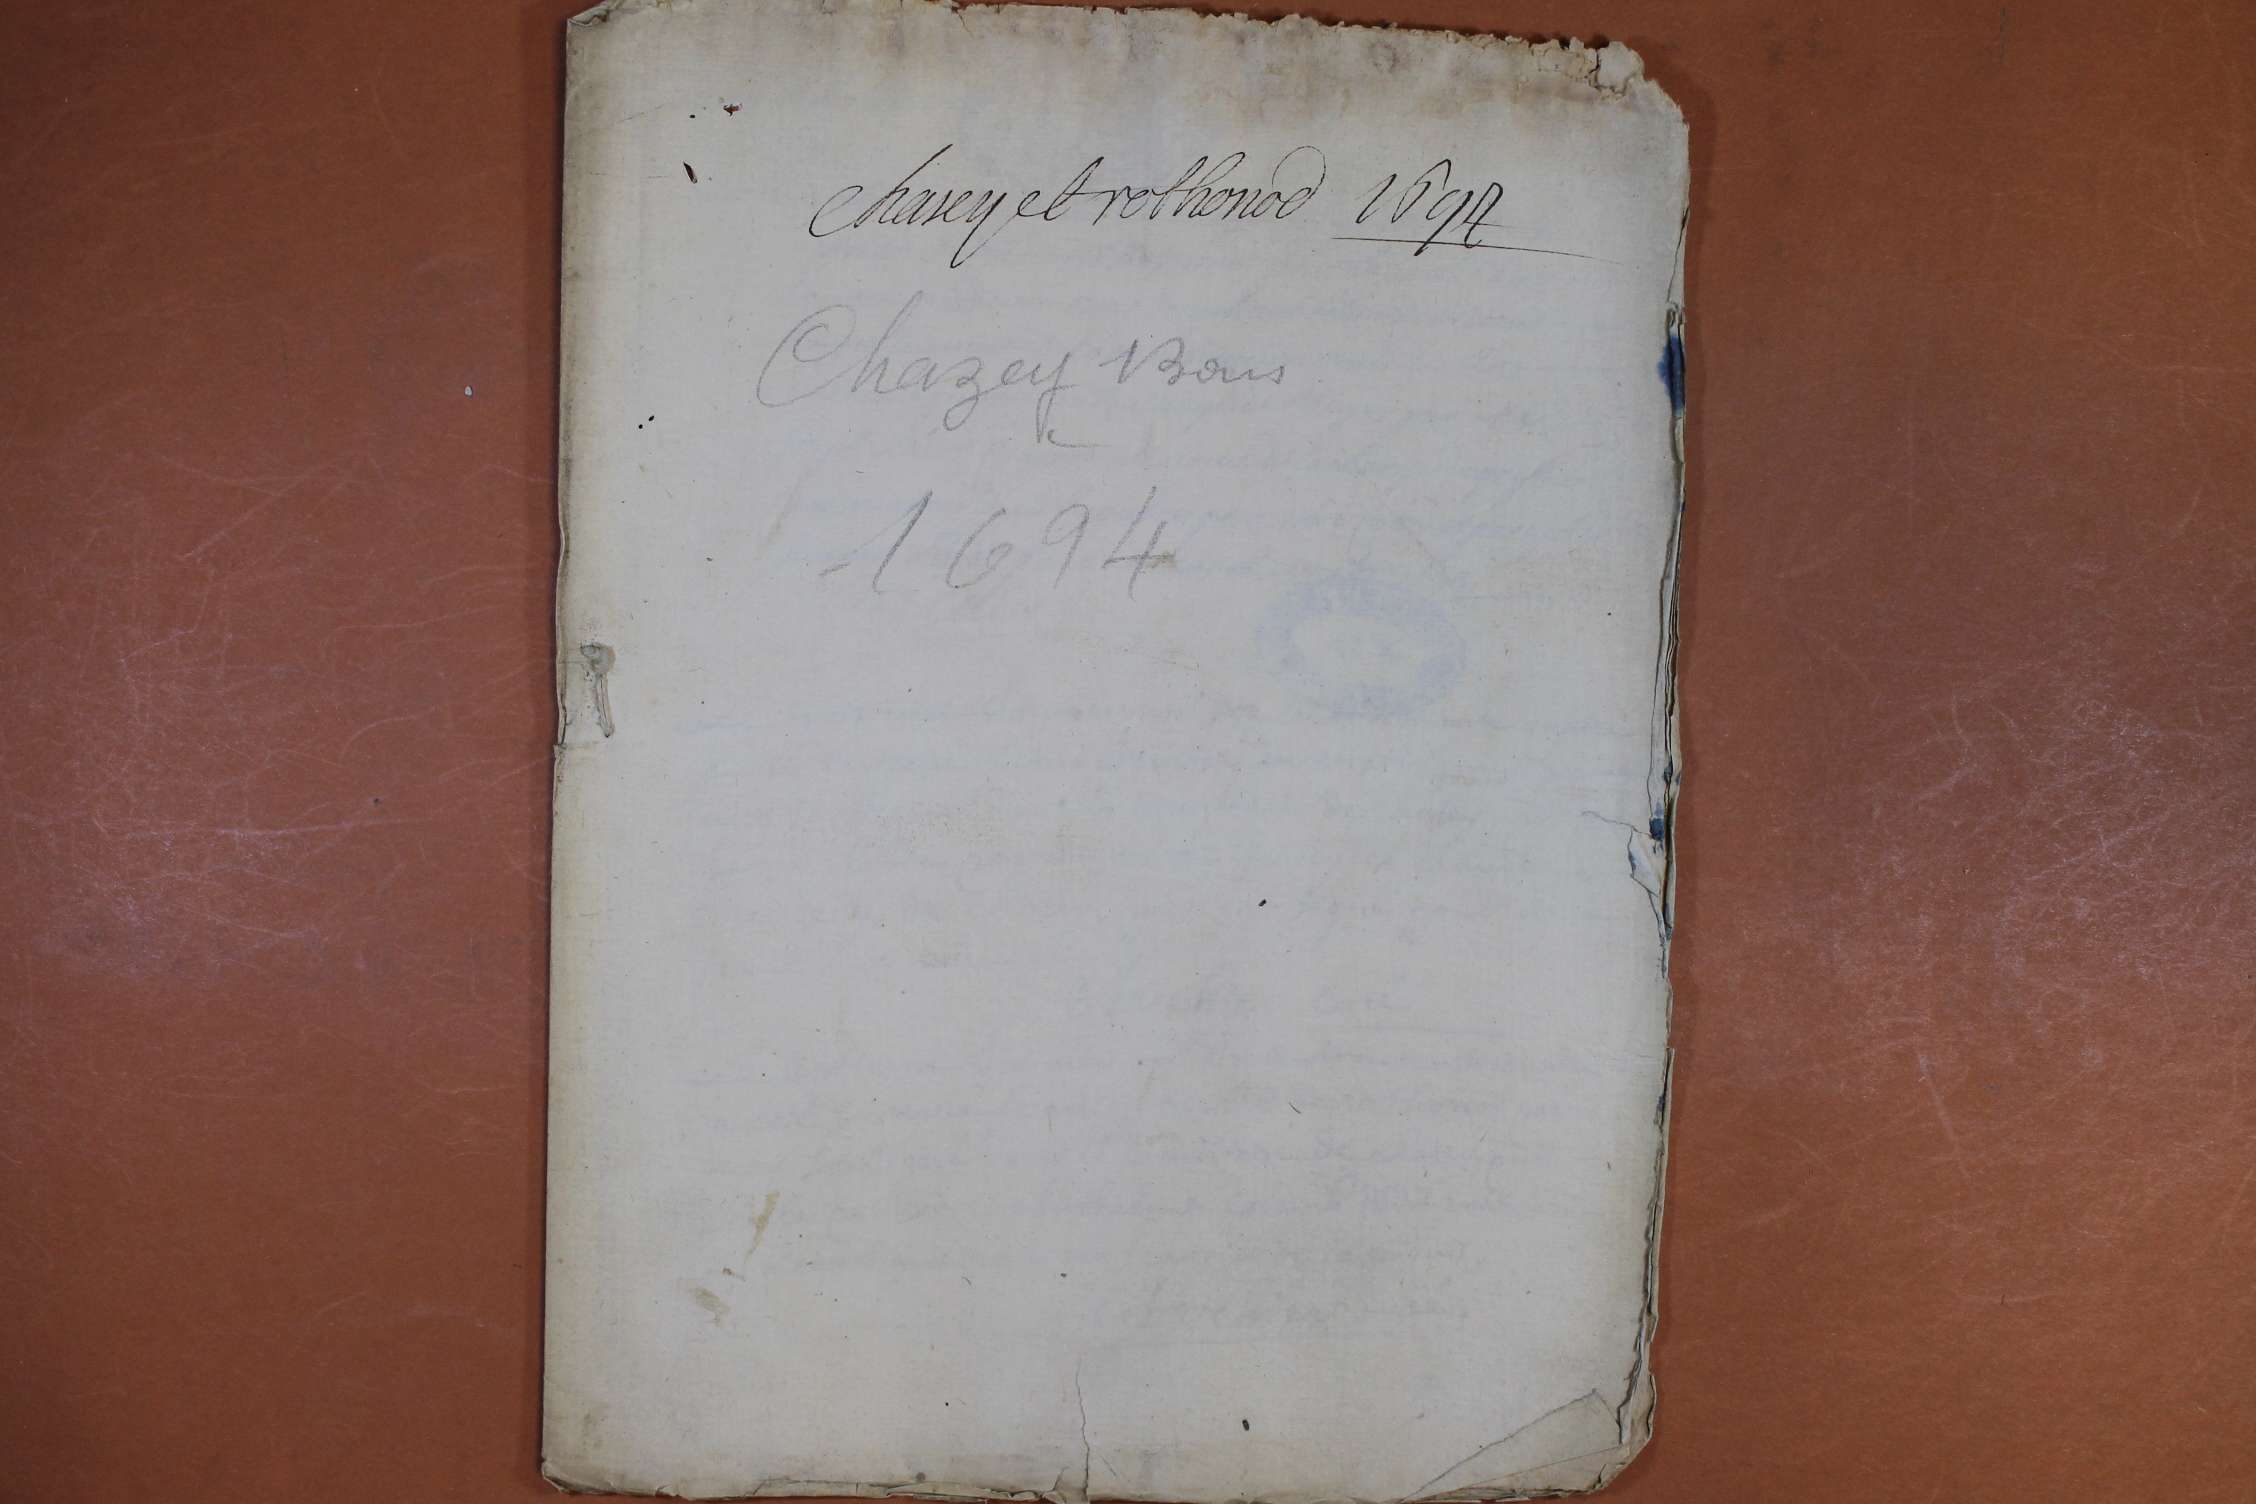 chasey et rothonod 1694
Chazey Bons
1694